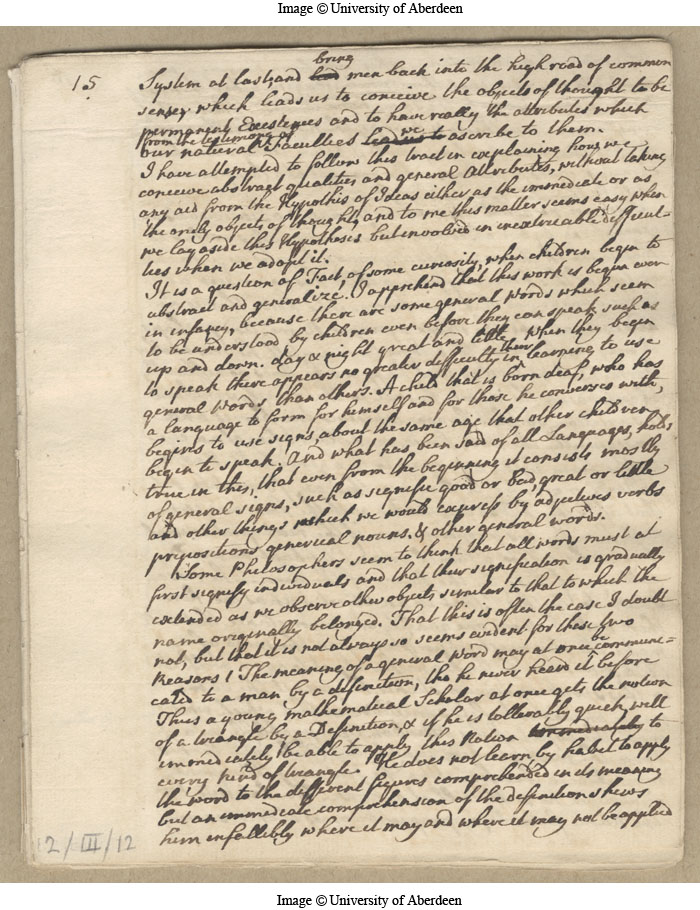 Image © University of Aberdeen
15
bring
System at last, and lead men back into the high road of common
sense, which leads us to conceive the objects of thought to be
permanent Existences and to have really the attributes which
from the testimony of we
our natural Faculties lead us to ascribe to them.
I have attempted to follow this tract in explaining how we
conceive abstract qualities and general Attributes, without taking
any aid from the Hypothis of Ideas either as the immediate or as
the only objects of thought, and to me this matter seems easy when
we lay aside this Hypothesis but involved in inextricable difficul-
ties when we adopt it.
It is a question of Fact, of some curiosity, when children begin to
abstract and generalize. I apprehend that this work is begun even
in infancy, because there are some general words which seem
to be understood by children even before they can speak, such as
up and down. day & night great and little. When they begin
to speak there appears no greater difficulty in their learning to use
general words than others. A child that is born deaf, who has
a language to form for himself and for those he converses with,
begins to use signs, about the same age that other children
begin to speak. And what has been said of all Languages, holds
true in this, that even from the beginning it consists mostly
of general signs, such as signifie good or bad, great or little
and other things which we would express by adjectives verbs
prepositions generical nouns. & other general words.
Some Philosophers seem to think that all words must at
first signify individuals and that their signification is gradually
extended as we observe other objects similar to that to which the
name originally belonged. That this is often the case I doubt
not, but that it is not always so seems evident for these two
Reasons 1 The meaning of a general word may at once be communi=
cated to a man by a definition, tho he never heard it before
Thus a young mathematical Scholar at once gets the notion
of a triangle by a Definition, & if he is tollerably quick, will
immediately be able to apply this Notion immediately to
every kind of triangle. He does not learn by habet to apply
the word to the different figures comprehended in its meaning
but an immediate comprehension of the definition shews
him infallibly where it may and where it may not be applied
2/III/12
Image © University of Aberdeen